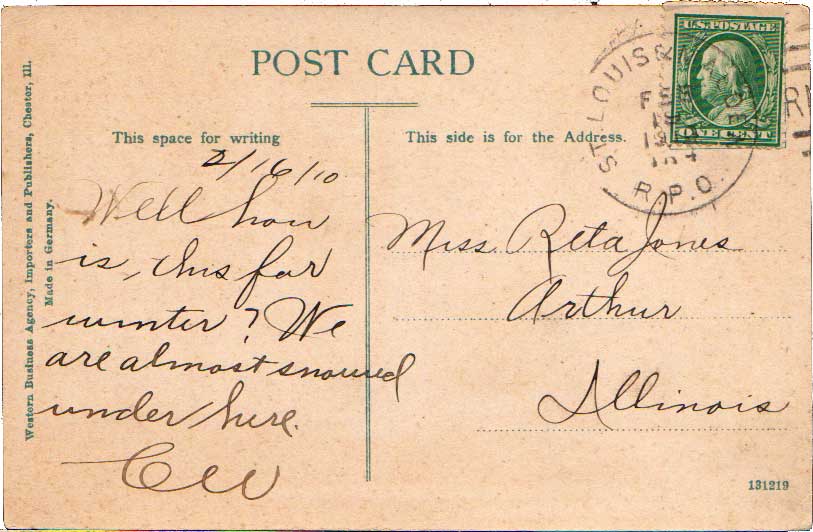 POST CARD
This space for writing
This side is for the Address.
U.S. POSTAGE
ONE CENT
ST. LOUIS &
FEB
R.P.O.
2/16/10
Well how
is, this for
winter? We
are almost snowed
under here.
CW
Miss Reta Jones
Arthur
Illinois
Western Business Agency, Importers and Publishers, Chester, Ill.
Made in Germany.
131219